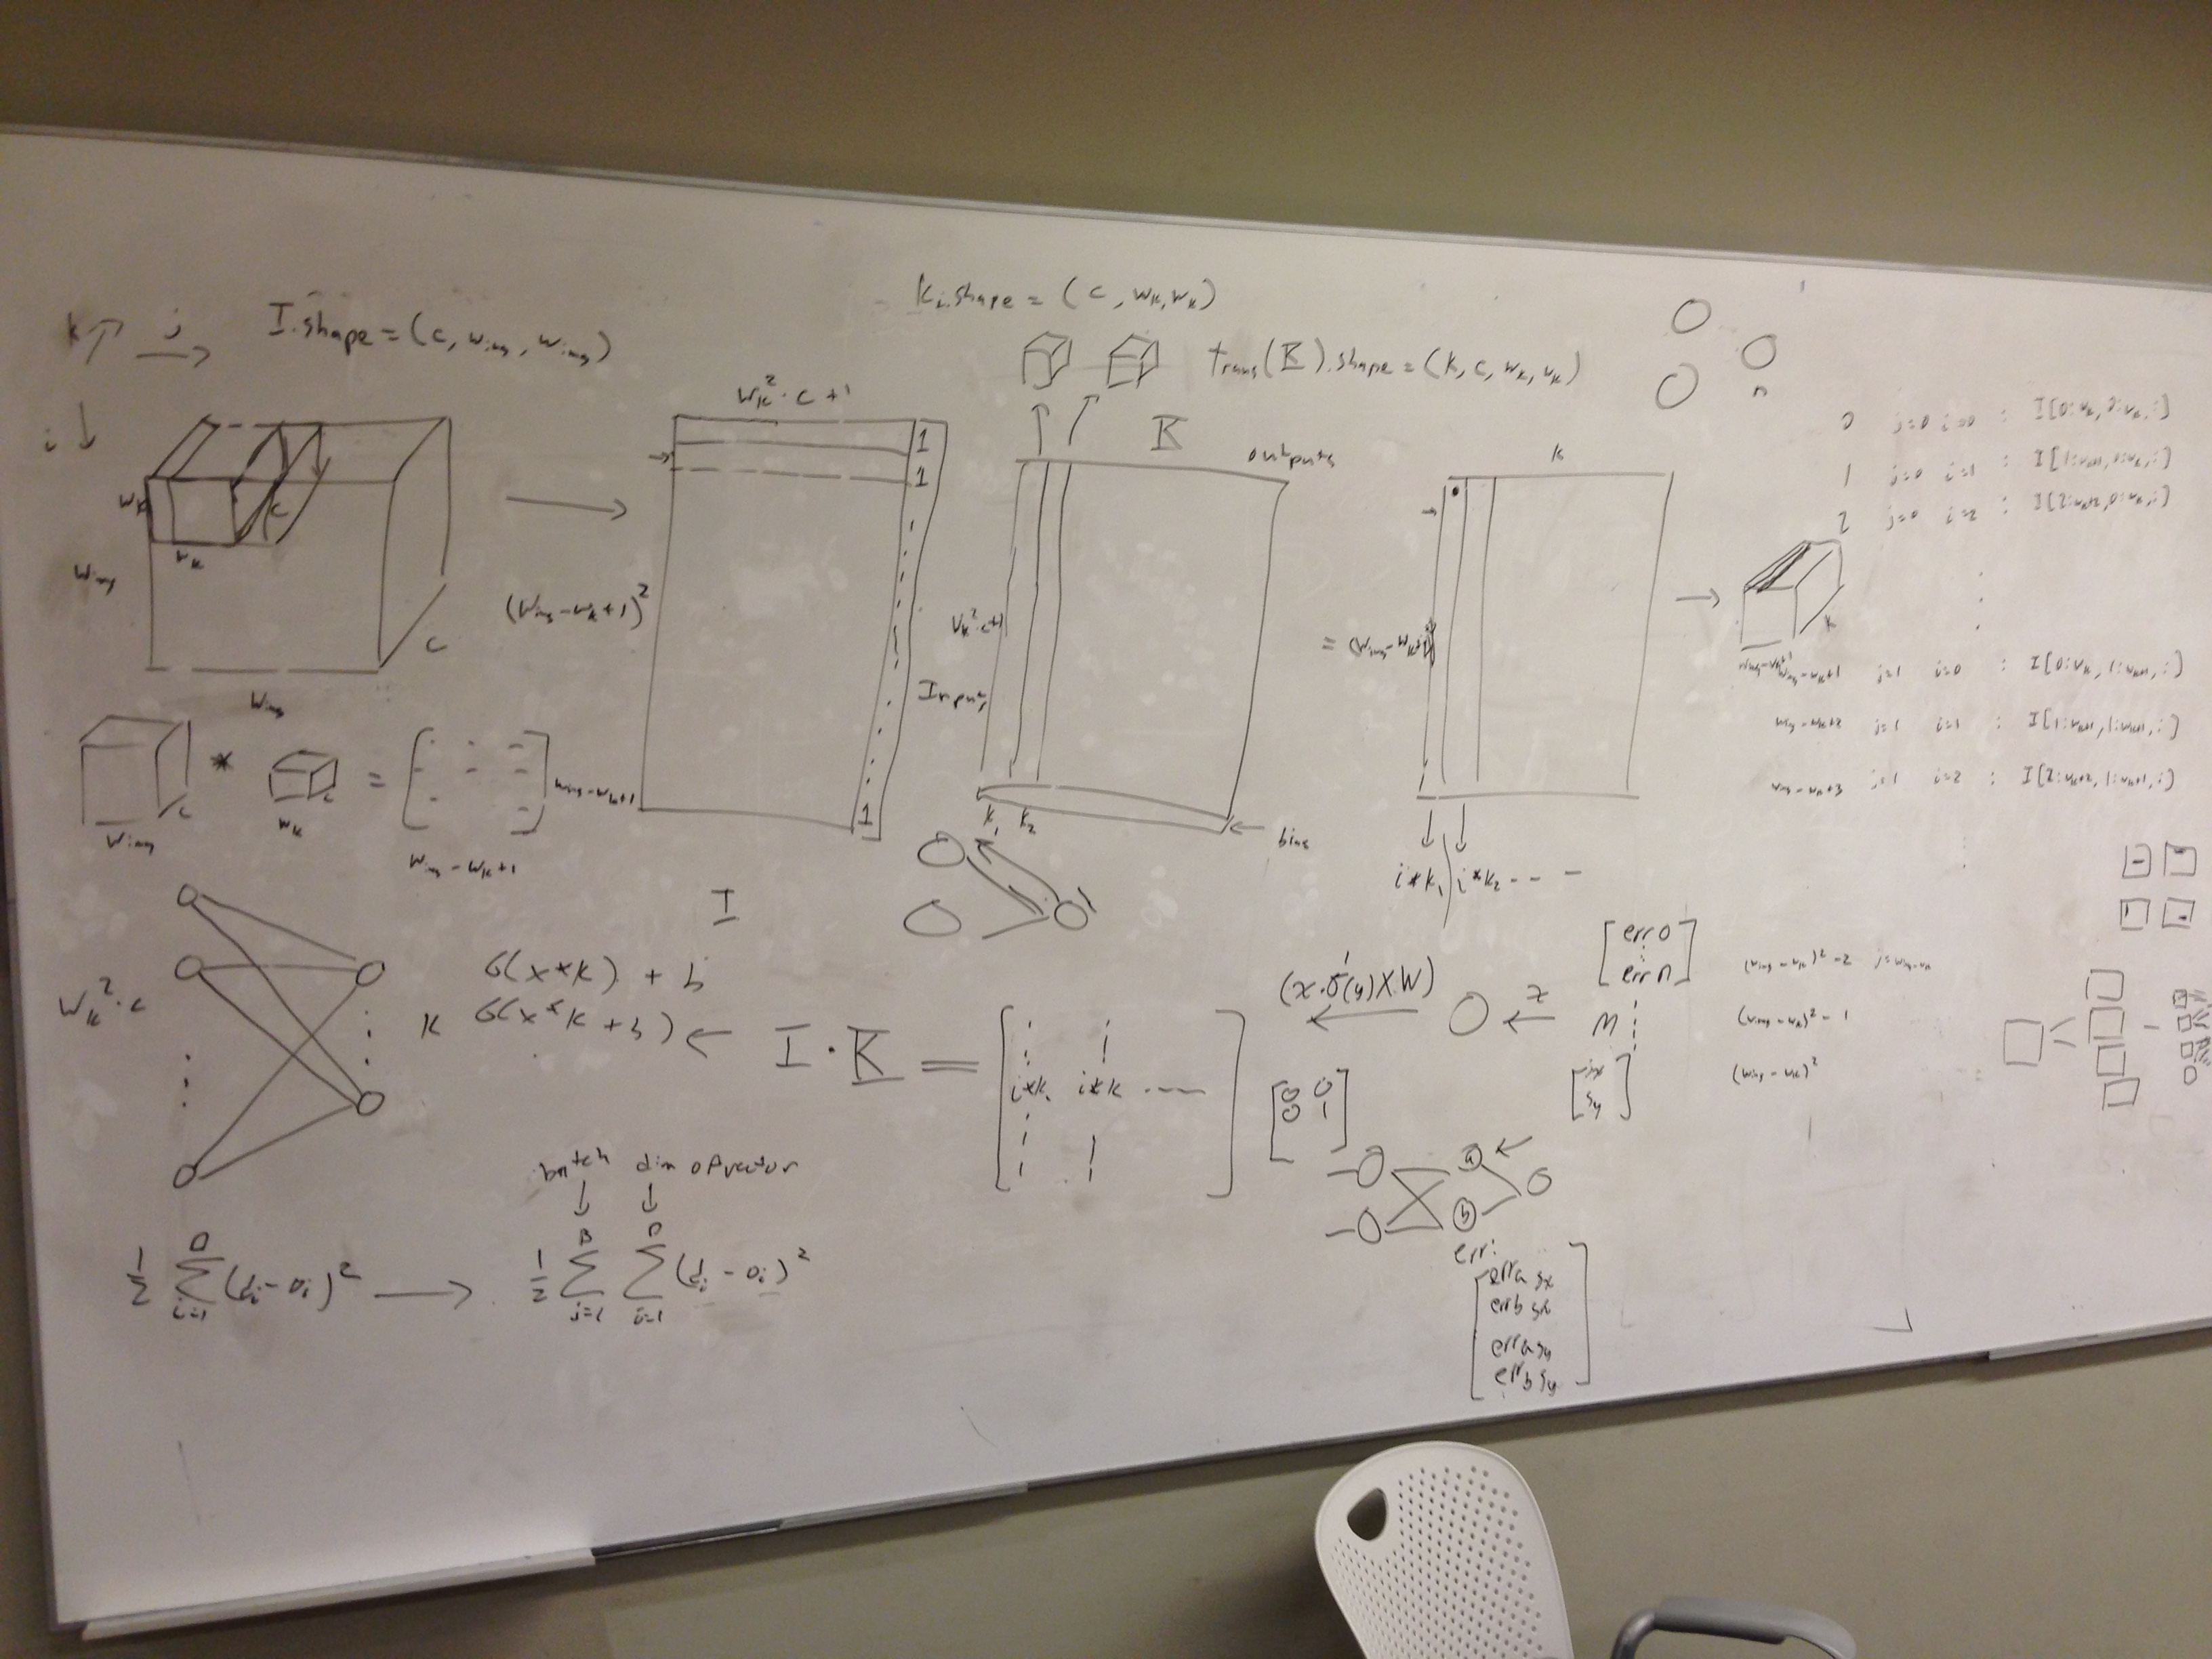 k j
I.shape = (c, w_img, w_img)
i
w_k
w_k
c
w_img
c
w_img
w_k² · c + 1
(w_img - w_k + 1)²
1
1
1
I
k_i.shape = (c, w_k, w_k)
trans(K).shape = (k, c, w_k, w_k)
K
outputs
w_k² · c + 1
Inputs
k₁ k₂
bias
k
=
i*k₁ i*k₂ - - -
k
n
0 j=0 i=0 : I[0:w_k, 0:w_k, :]
1 j=0 i=1 : I[1:w_k+1, 0:w_k, :]
2 j=0 i=2 : I[2:w_k+2, 0:w_k, :]
w_img - w_k + 1 j=1 i=0 : I[0:w_k, 1:w_k+1, :]
w_img - w_k + 2 j=1 i=1 : I[1:w_k+1, 1:w_k+1, :]
w_img - w_k + 3 j=1 i=2 : I[2:w_k+2, 1:w_k+1, :]
(w_img - w_k)² - 2 j = w_img - w_k
(w_img - w_k)² - 1
(w_img - w_k)²
* =
w_img c
w_k c
w_img - w_k + 1
w_img - w_k + 1
w_k² · c
k
σ(x*k) + b
σ(x*k + b) ←
I · K = [ i*k₁ i*k ---- ]
(x · σ'(y) X W)
x
err 0
err n
m
sx
sy
0 0
0 1
a
b
err:
erra sx
errb sx
erra sy
errb sy
batch dim of vector
½ Σ_{i=1}^{D} (d_i - o_i)² → ½ Σ_{j=1}^{B} Σ_{i=1}^{D} (d_i - o_i)²